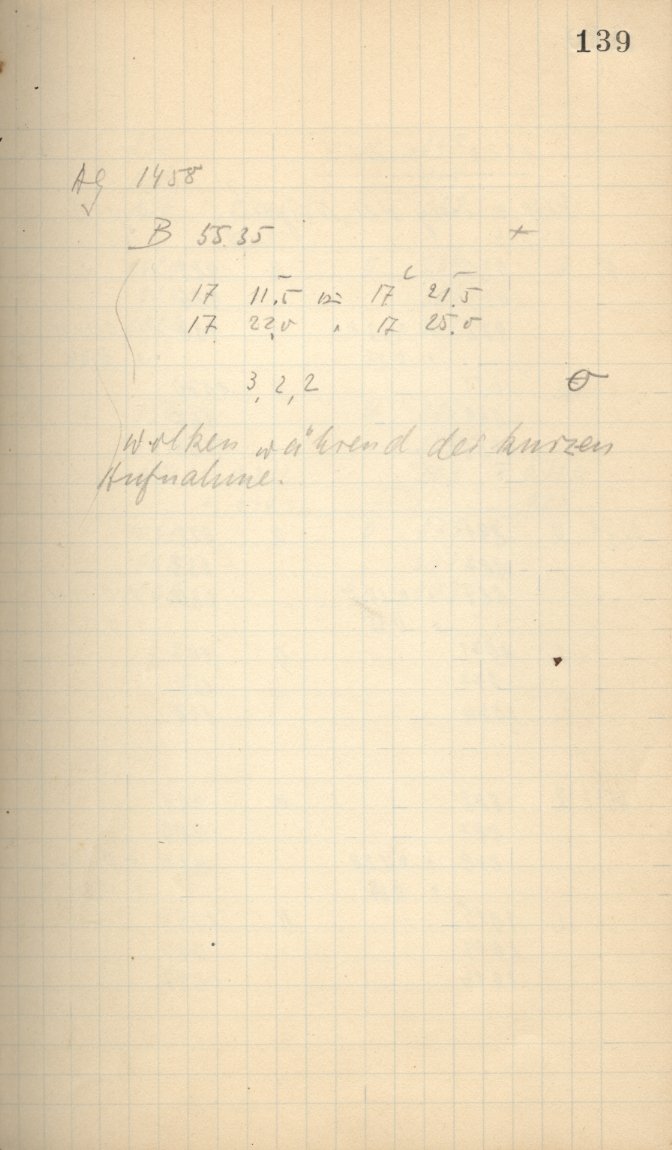 139
AG 1458
B 5535 +
17 11.5 17 21.5
17 22.0 17 25.0
3, 2, 2
Wolken während der kurzen
Aufnahme.